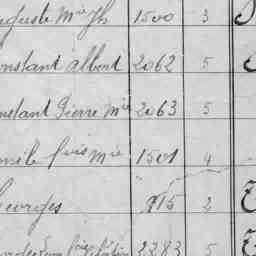 guste Mie Jh 1500 3
nstant Albert 2062 5
nstant Pierre Mie 2063 5
mile fois Mie 1501 4
Georges 915 2
2283 5